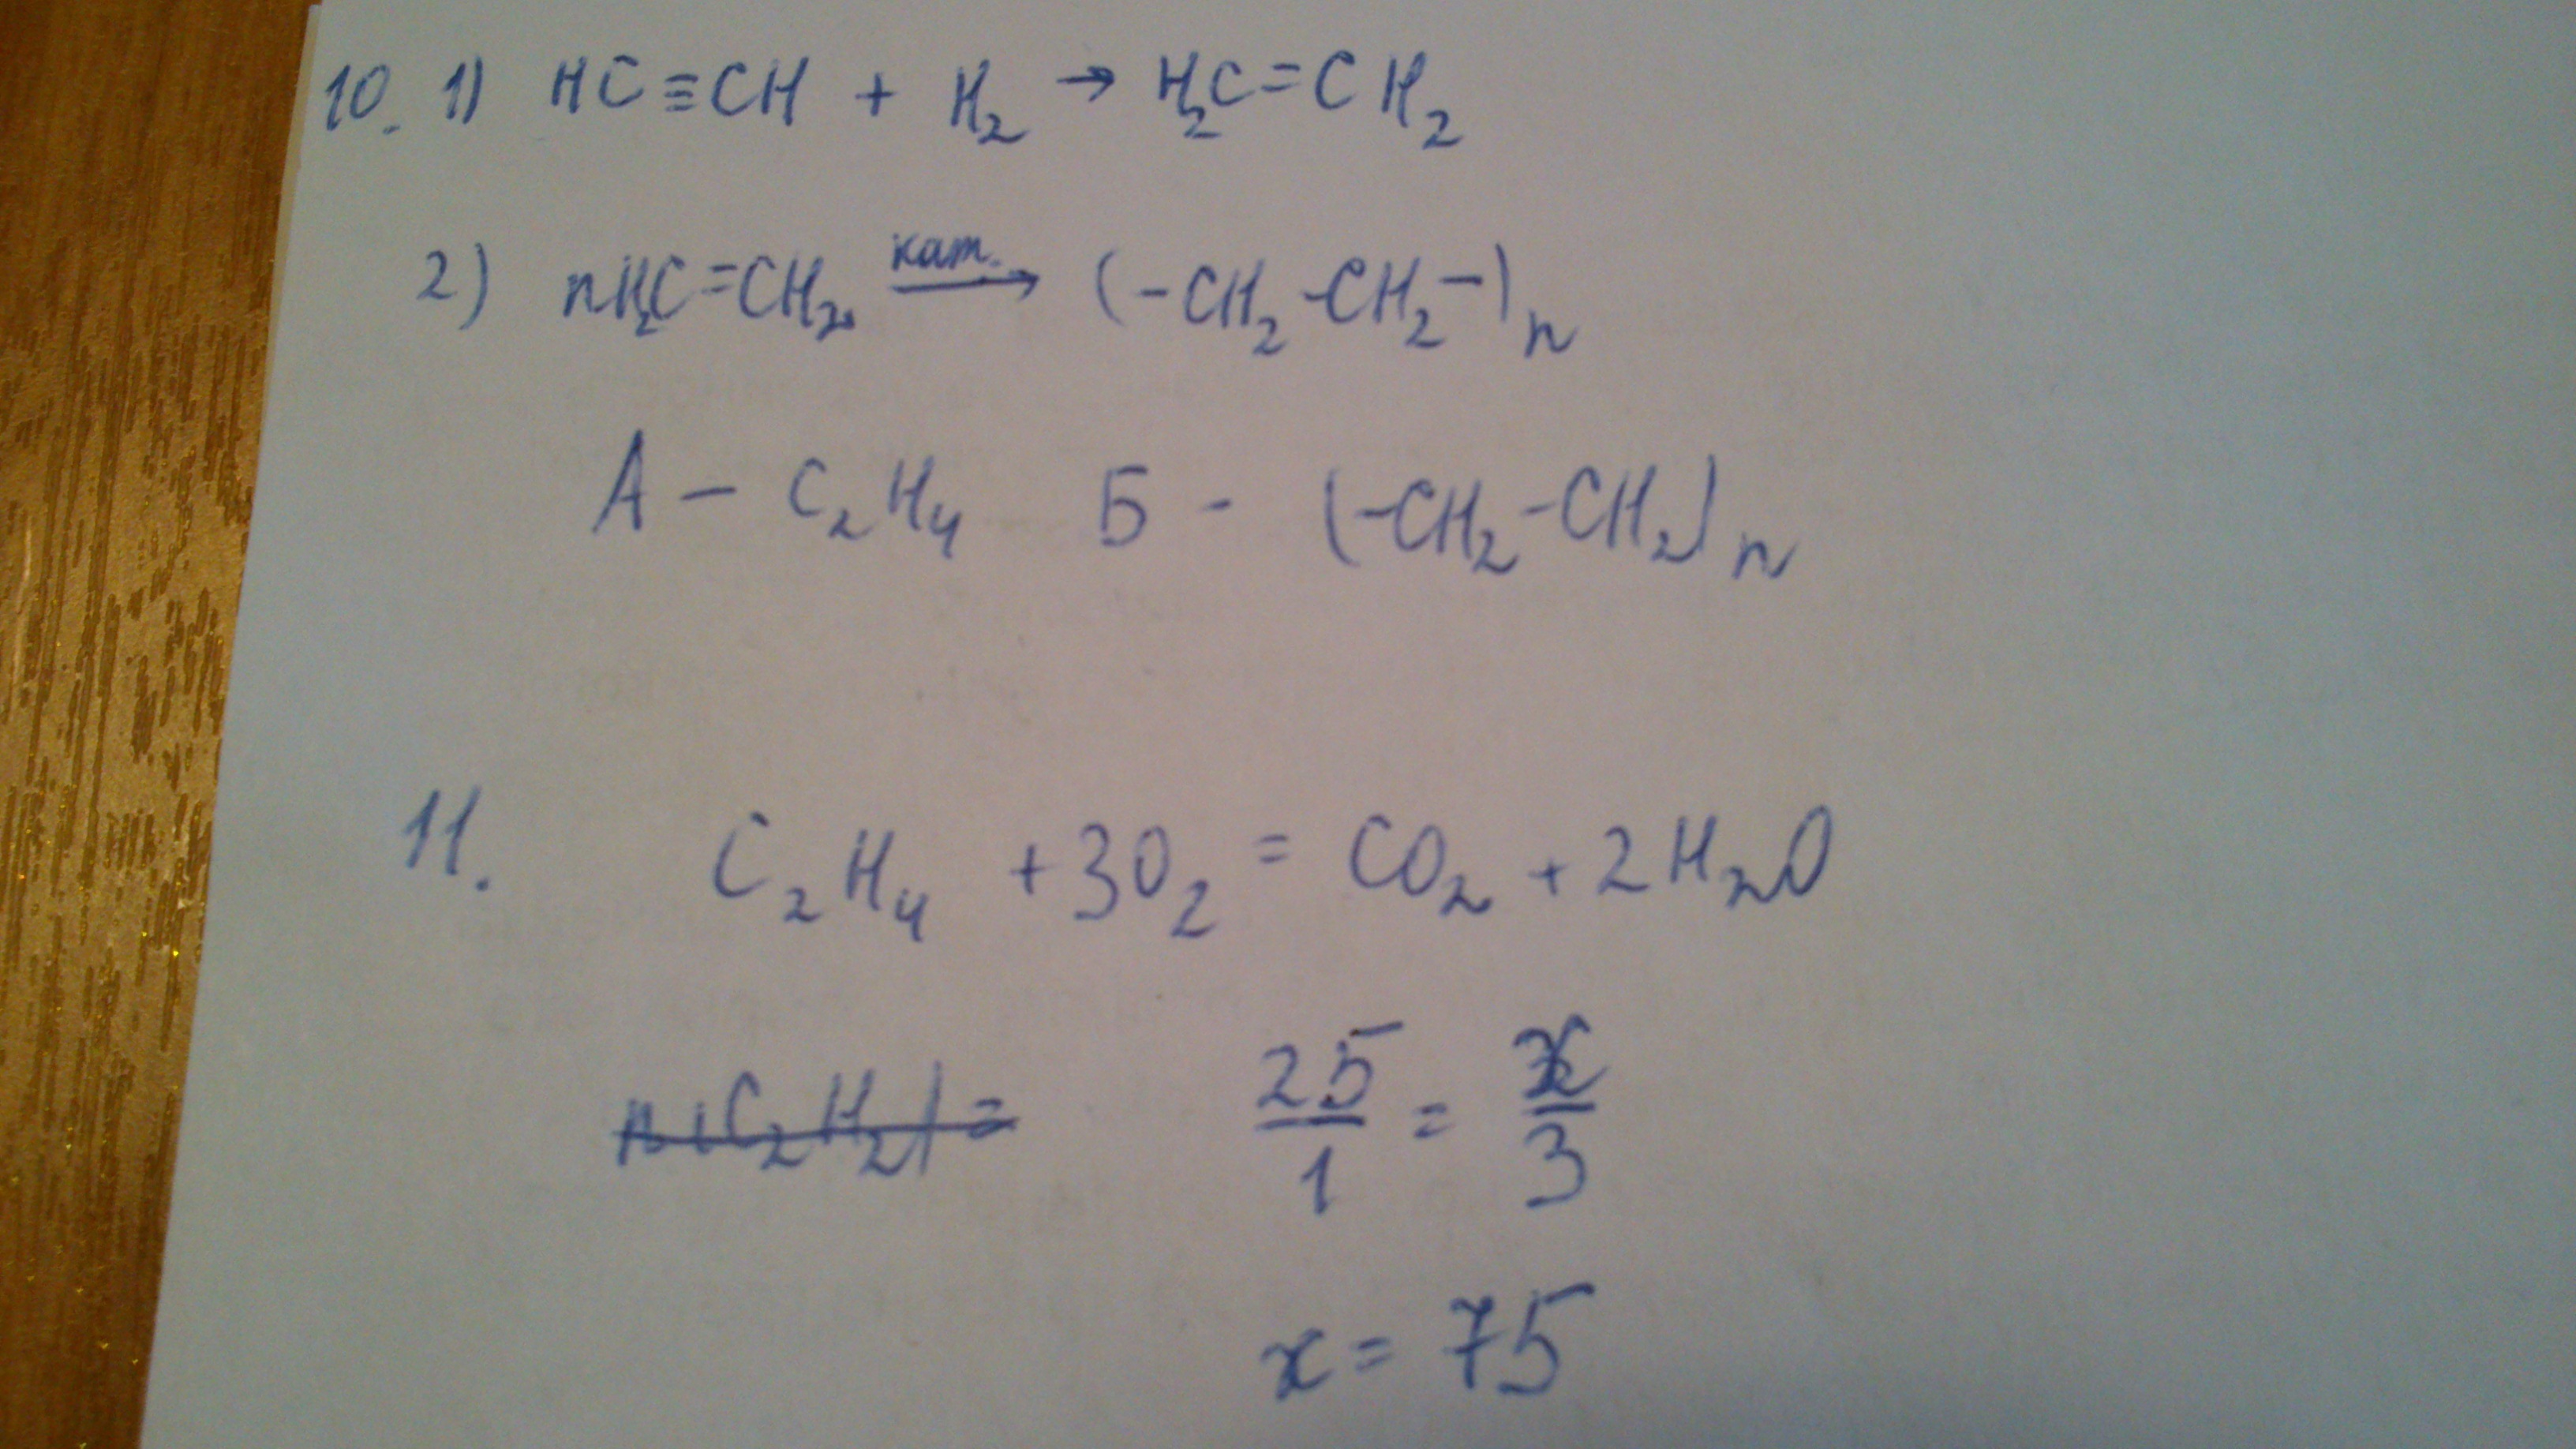 10. 1) HC≡CH + H₂ → H₂C=CH₂
2) nH₂C=CH₂ кат. → (-CH₂-CH₂-)n
А - C₂H₄ Б - (-CH₂-CH₂)n
11. C₂H₄ + 3O₂ = CO₂ + 2H₂O
n(C₂H₂) = 25/1 = x/3
x = 75